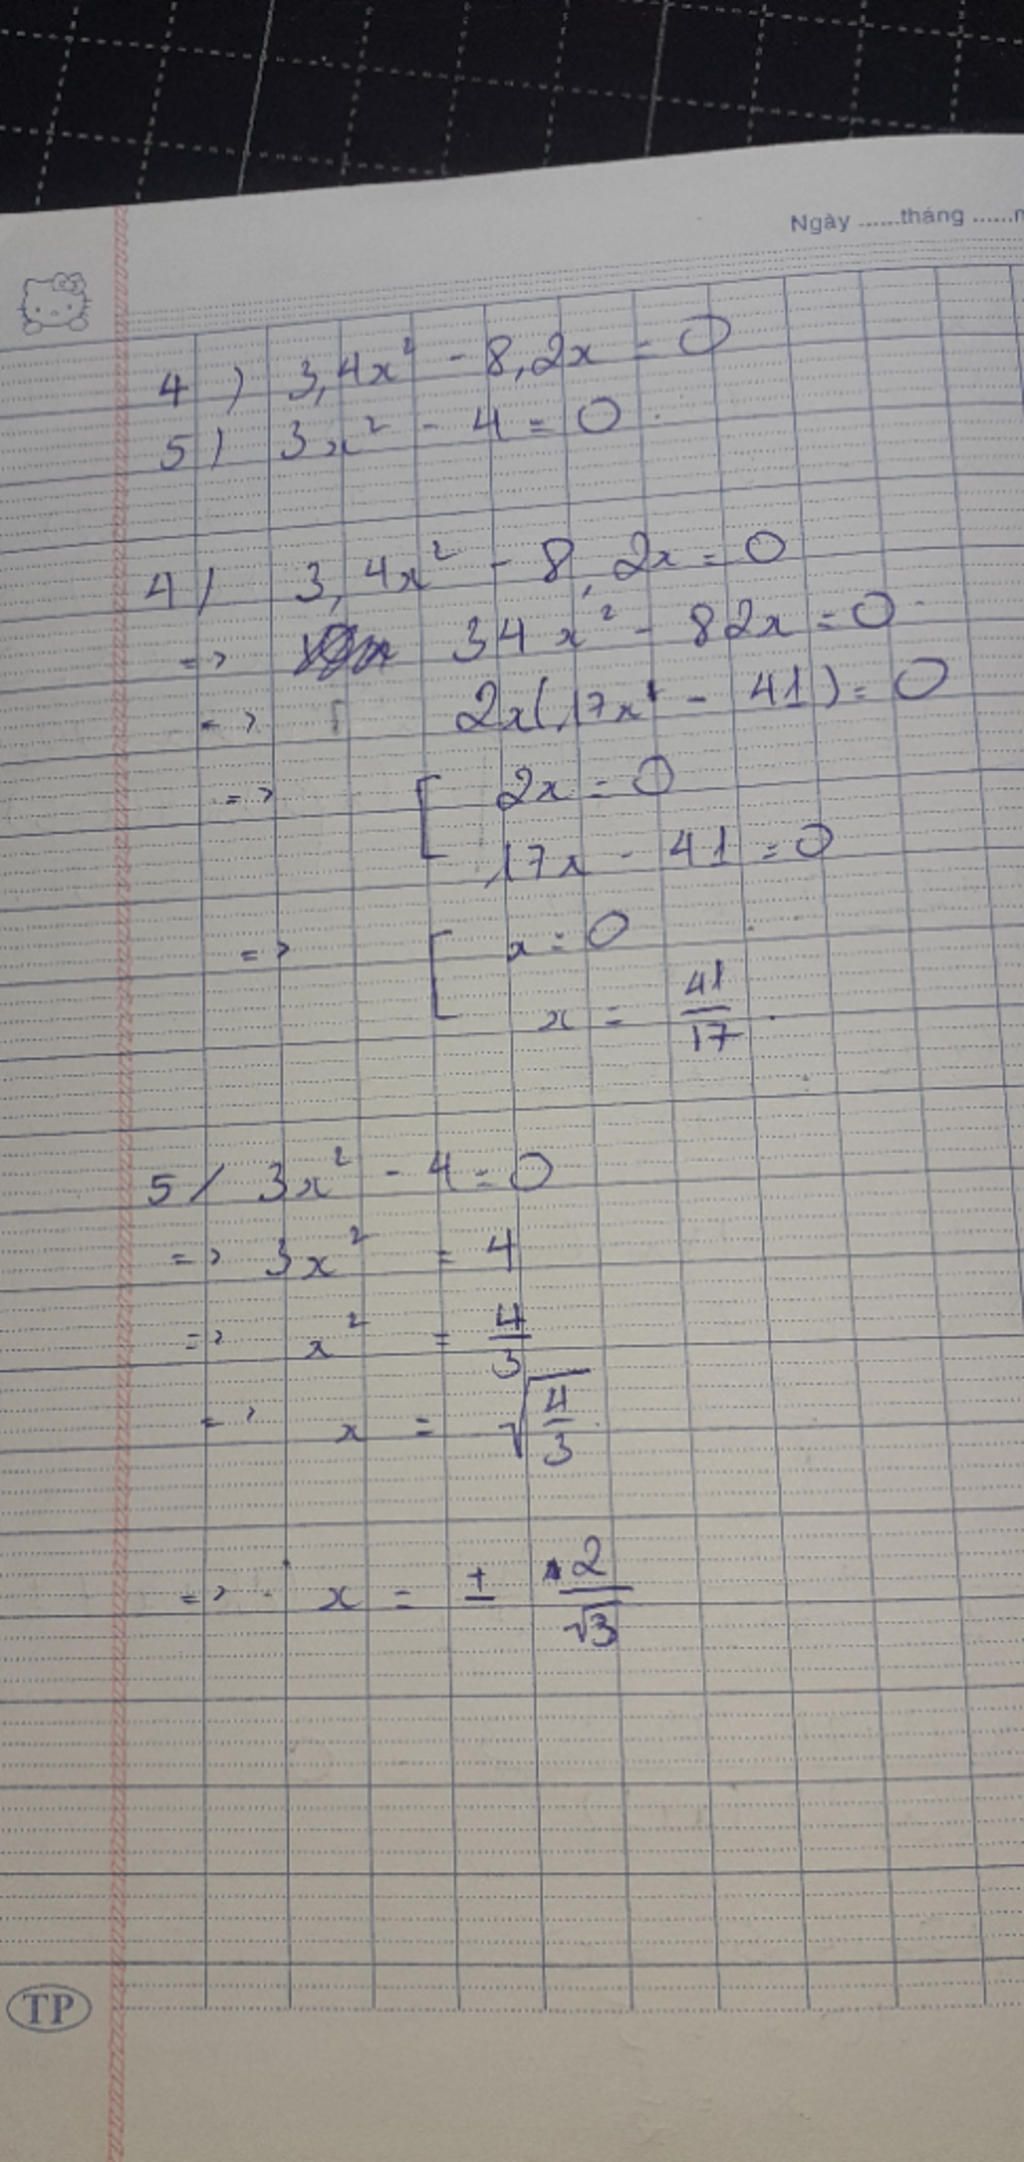 Ngày ......tháng ......n
4) 3,4x² - 8,2x = 0
5) 3x² - 4 = 0
4/ 3,4x² - 8,2x = 0
=> 34x² - 82x = 0
=> 2x(17x - 41) = 0
=> [ 2x = 0
17x - 41 = 0
=> [ x = 0
x = 41/17
5/ 3x² - 4 = 0
=> 3x² = 4
=> x² = 4/3
=> x = √(4/3)
=> x = ± 2/√3
TP